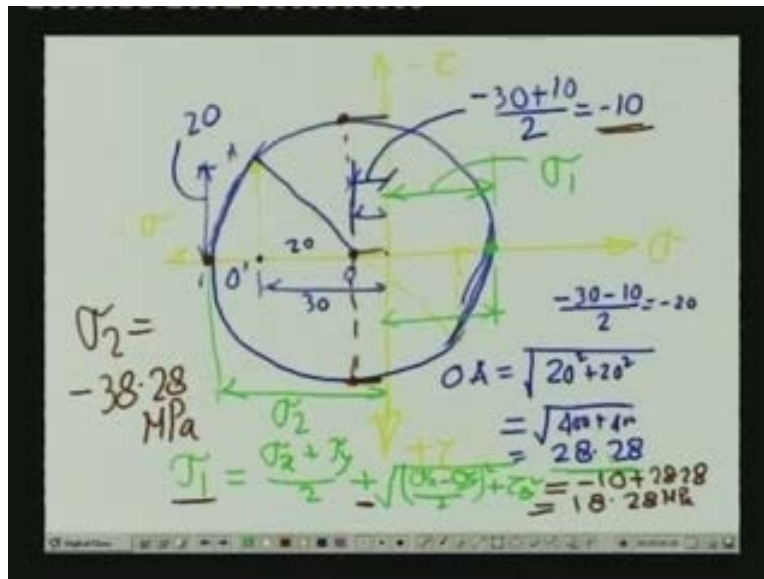 -τ
20
-30+10
2
= -10
A
σ1
σ
20
σ
1
O'
O
30
-30-10
2
= -20
σ2 =
-38.28
MPa
OA = √20² + 20²
= √400 + 400
= 28.28
σ2
+τ
σ1 = σx + σy
2
+ √(σx - σy)² + τ
2
= -10 + 28.28
= 18.28 MPa